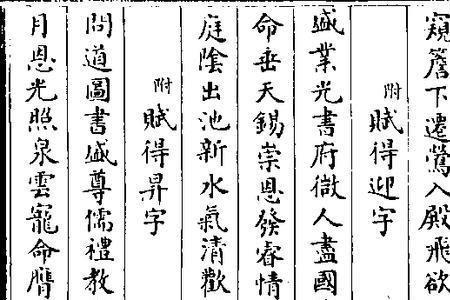 窺簷下遷鶯入殿飛欲
附賦得迎字
盛業光書府徵人盡國
命垂天錫崇恩發睿情
庭陰出池新水氣清歡
附賦得昇字
問道圖書盛尊儒禮教
月恩光照泉雲寵命膺